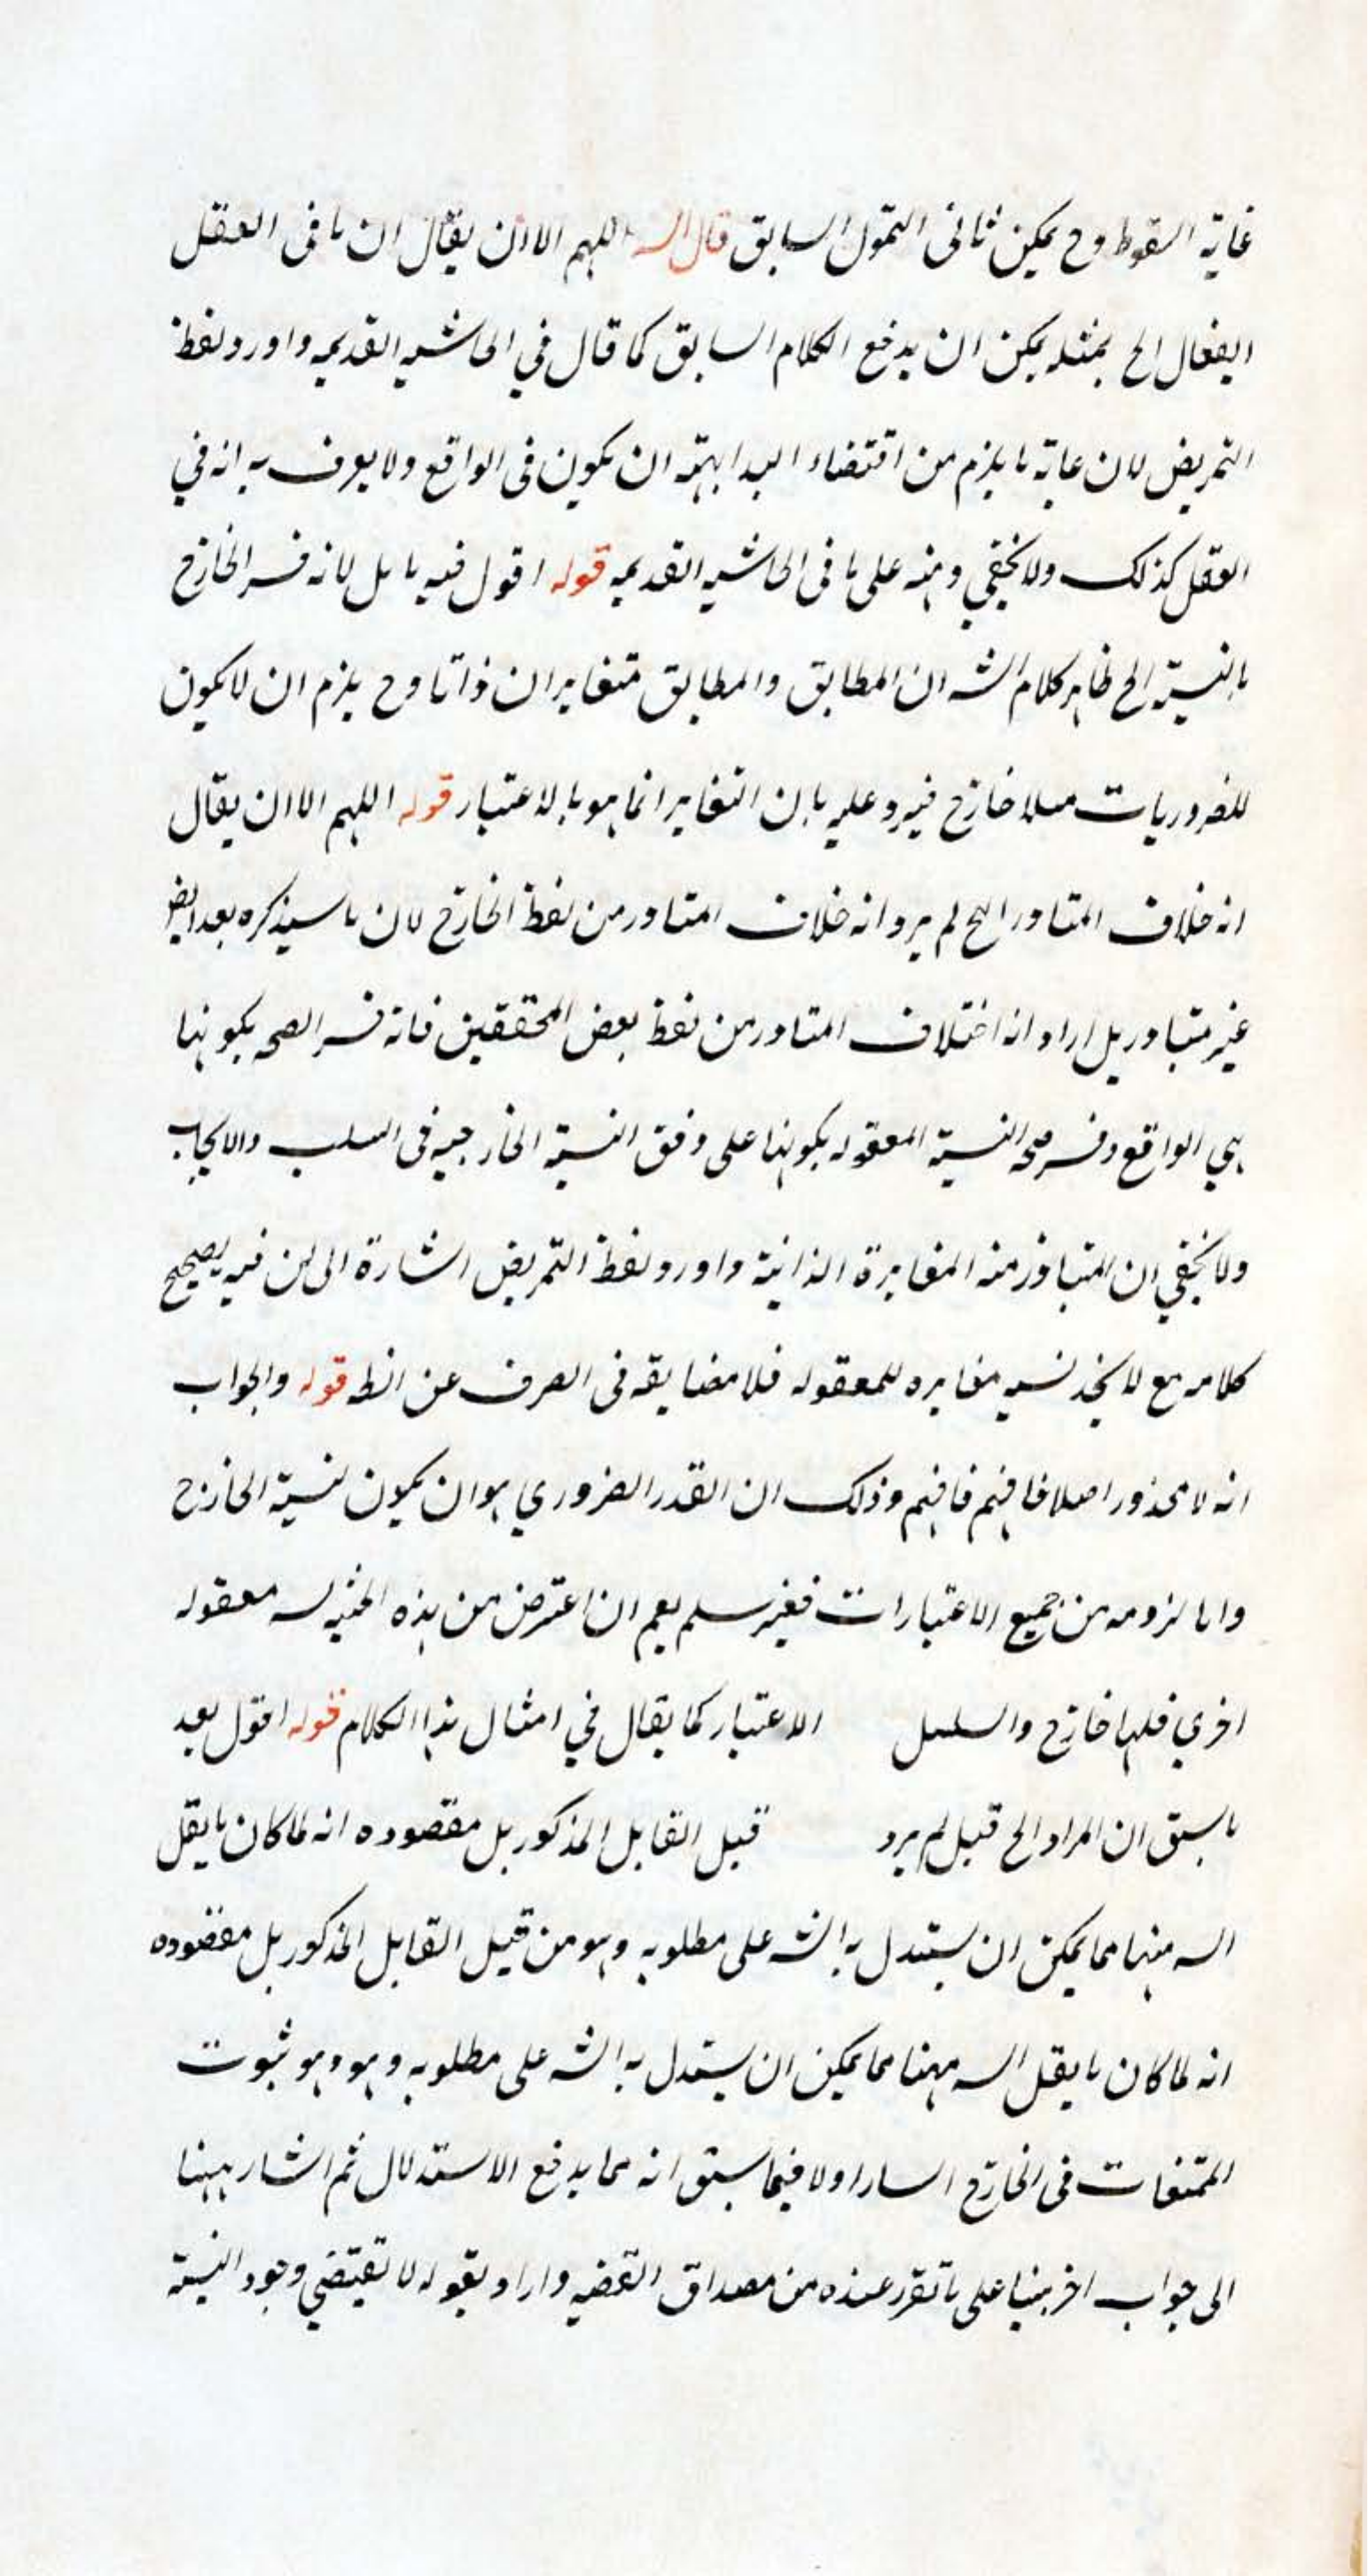 غاية السقوط وح يمكن ثانى التمول السابق قال الشه اللهم الا ان يقال ان ما فى العقل
ايفعال الخ بمثله يمكن ان يدفع الكلام السابق كما قال في الحاشيه القديمه واورد لفظ
التمريض لان غاية ما يلزم من اقتضاء البداهة ان تكون فى الواقع ولا يعرف به انه في
العقل كذلك ولا يخفي وهنه على ما فى الحاشيه القديمه قوله اقول فيه تامل لانه فسر الخارج
بالنسبة الخ ظاهر كلام الشه ان المطابق والمطابق متغايران ذاتا وح يلزم ان لا يكون
للضروريات مثلا خارج فيرد عليه بان التغاير انما هو بالاعتبار قوله اللهم الا ان يقال
انه خلاف المتبادر الخ لم يرد انه خلاف المتبادر من لفظ الخارج لان ما سيذكره بعد ايض
غير متبادر بل اراد انه اختلاف المتبادر من لفظ بعض المحققين فانه فسر الصحه بكونها
هي الواقع وفسر صحه النسبة المعقوله بكونها على وفق النسبة الخارجيه فى السلب والايجاب
ولا يخفي ان المتبادر منه المغايرة الذاتية واورد لفظ التمريض اشارة الى ان فيه تصحيح
كلامه مع لا يخذ نسبه مغايره للمعقوله فلا مضايقه فى الصرف عن الظ قوله والجواب
انه لا محذور اصلا فافهم فافهم وذلك ان القدر الضروري هو ان يكون لنسبة الخارج
واما لزومه من جميع الاعتبارات فغير سلم نعم ان اعترض من هذه الحثيه معقوله
اخري فلها خارج والسلسل الاعتبار كما يقال في امثال هذا الكلام قوله اقول بعد
ما سبق ان المراد الخ قبل لم يرد قبل القابل المذكور بل مقصوده انه لما كان ما يقل
السه منها مما يمكن ان يستدل به الشه على مطلوبه وهو من قبل القابل المذكور بل مقصوده
انه لما كان ما يقل السه مهنا مما يمكن ان يستدل به الشه على مطلوبه وهو وهو ثبوت
الممتنعات فى الخارج اسارا ولا فيما سبق انه مما يدفع الاستدلال ثم اشار ههنا
الى جواب اخر مبنيا على ما تقرر عنده من مصداق القضيه واراد بقوله لا تقتضي وجود النسبة